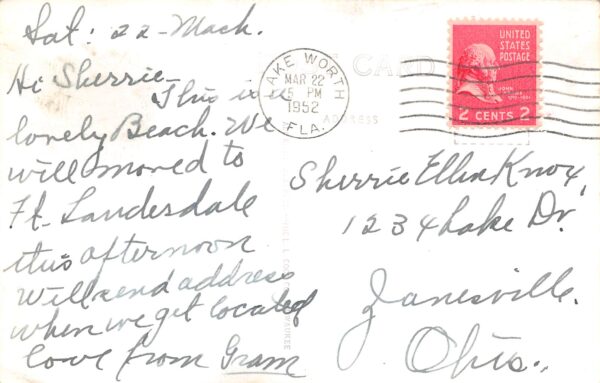 Sat: 22 - Mach.
Hi Sherrie -
This is a
lovely Beach. We
will moved to
Ft. Lauderdale
this afternoon
Will send address
when we get located
love from Gram
CARD
ADDRESS
LAKE WORTH
MAR 22
5 PM
1952
FLA.
UNITED
STATES
POSTAGE
JOHN
2 CENTS 2
Sherrie Ellen Knox,
1234 Lake Dr.
Janesville.
Ohio.